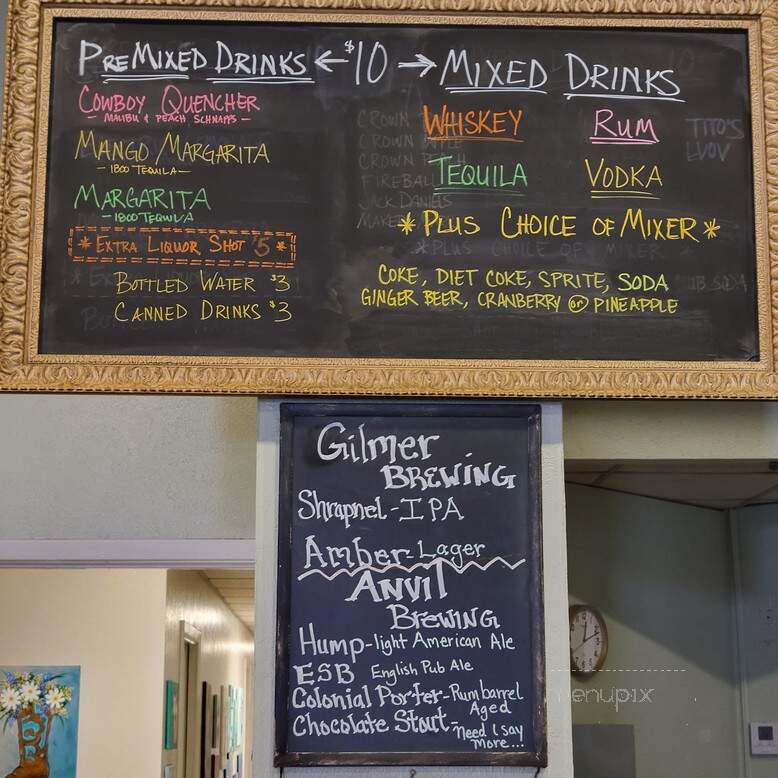 PREMIXED DRINKS ← $10 → MIXED DRINKS
COWBOY QUENCHER
- MALIBU & PEACH SCHNAPPS -
MANGO MARGARITA
- 1800 TEQUILA -
MARGARITA
- 1800 TEQUILA
* EXTRA LIQUOR SHOT $5 *
BOTTLED WATER $3
CANNED DRINKS $3
WHISKEY RUM
TEQUILA VODKA
* PLUS CHOICE OF MIXER *
COKE, DIET COKE, SPRITE, SODA
GINGER BEER, CRANBERRY or PINEAPPLE
CROWN
CROWN APPLE
CROWN
FIREBALL
JACK DANIELS
MAKER
TITO'S
PLUS CHOICE OF MIXER
Gilmer
BREWING
Shrapnel - IPA
Amber - Lager
ANVIL
BREWING
Hump - light American Ale
ESB English Pub Ale
Colonial Porter - Rum barrel
Aged
Chocolate Stout - need I say
more...
menupix